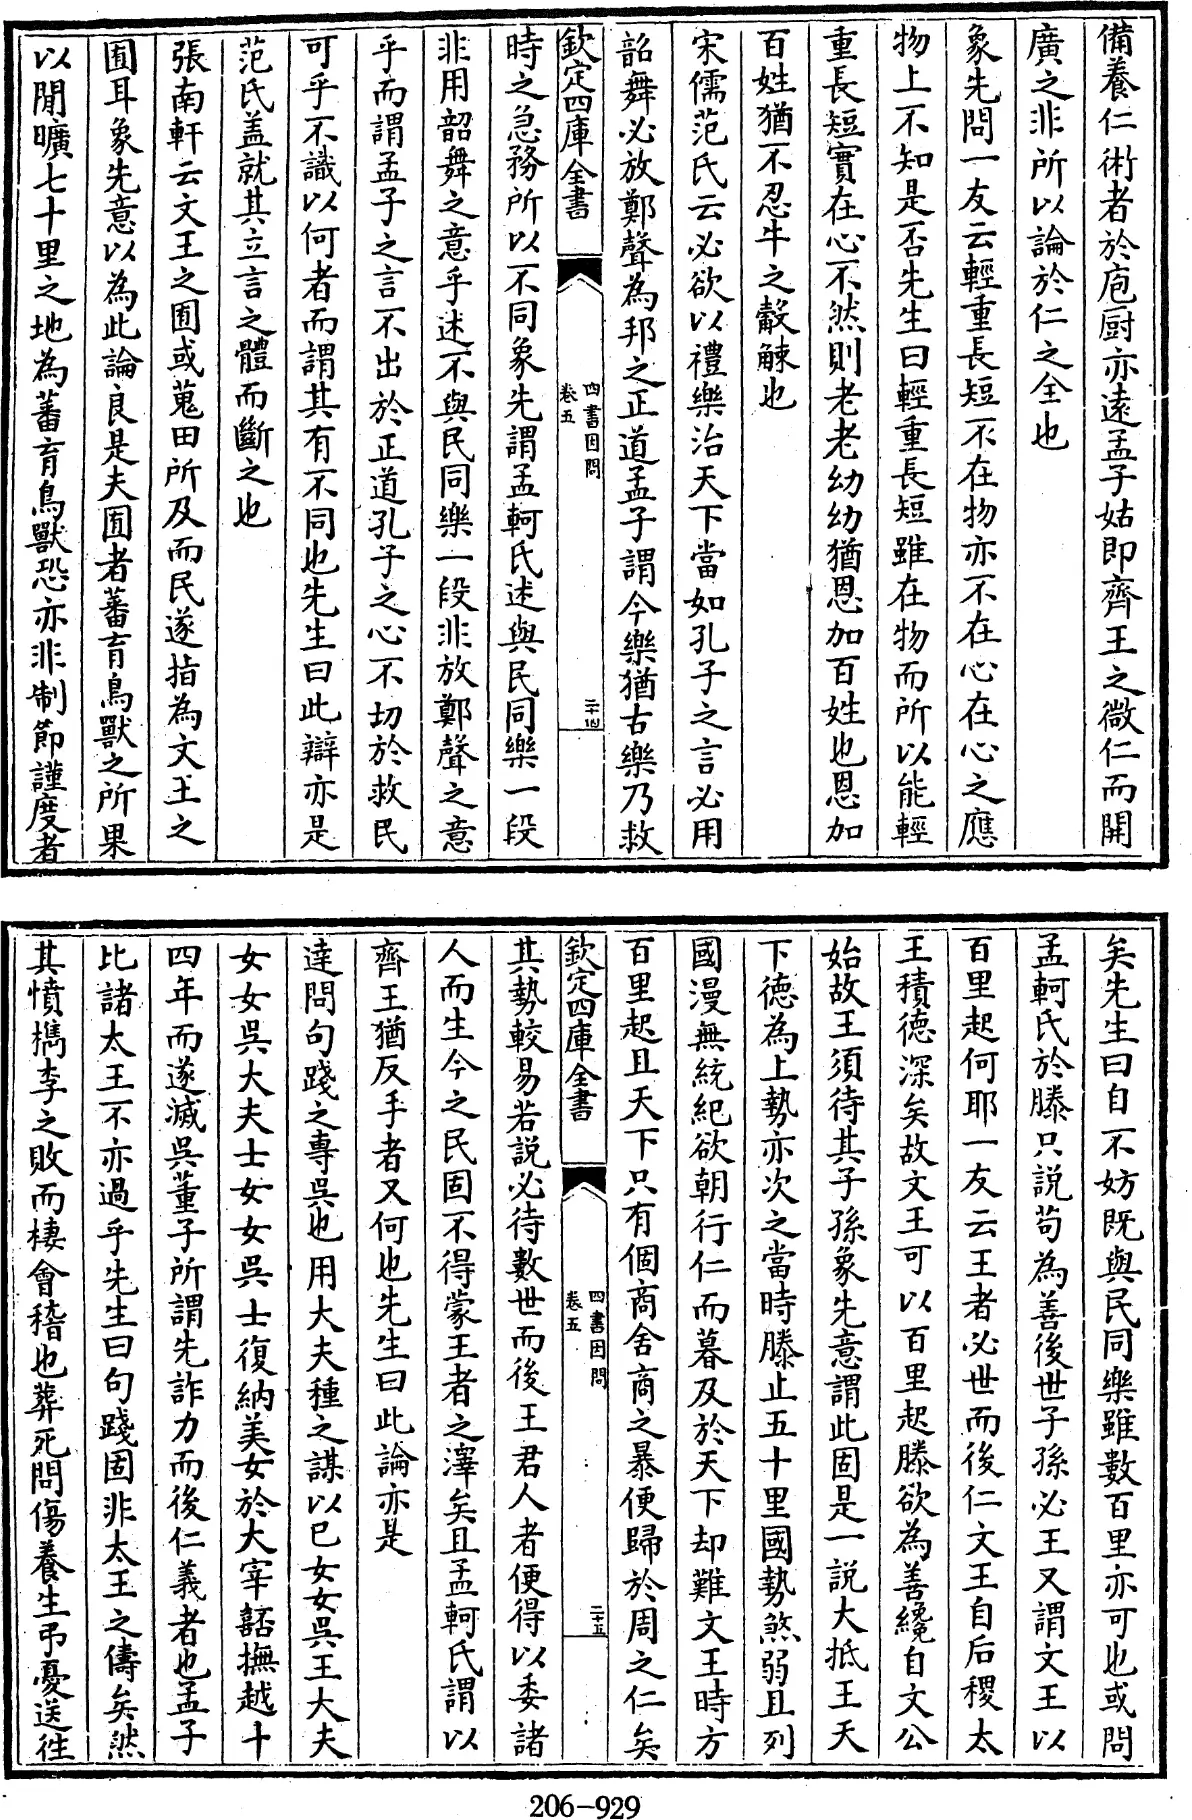 備養仁術者於庖厨亦逺孟子姑即齊王之微仁而開
廣之非所以論於仁之全也
象先問一友云輕重長短不在物亦不在心在心之應
物上不知是否先生曰輕重長短雖在物而所以能輕
重長短實在心不然則老老幼幼猶恩加百姓也恩加
百姓猶不忍牛之觳觫也
宋儒范氏云必欲以禮樂治天下當如孔子之言必用
韶舞必放鄭聲為邦之正道孟子謂今樂猶古樂乃救
欽定四庫全書
四書因問
卷五
二十四
時之急務所以不同象先謂孟軻氏述與民同樂一段
非用韶舞之意乎述不與民同樂一段非放鄭聲之意
乎而謂孟子之言不出於正道孔子之心不切於救民
可乎不識以何者而謂其有不同也先生曰此辯亦是
范氏蓋就其立言之體而斷之也
張南軒云文王之囿或蒐田所及而民遂指為文王之
囿耳象先意以為此論良是夫囿者蕃育鳥獸之所果
以閒曠七十里之地為蕃育鳥獸恐亦非制節謹度者
矣先生曰自不妨既與民同樂雖數百里亦可也或問
孟軻氏於滕只說苟為善後世子孫必王又謂文王以
百里起何耶一友云王者必世而後仁文王自后稷太
王積德深矣故文王可以百里起滕欲為善纔自文公
始故王須待其子孫象先意謂此固是一說大抵王天
下德為上勢亦次之當時滕止五十里國勢煞弱且列
國漫無統紀欲朝行仁而暮及於天下却難文王時方
百里起且天下只有個商舍商之暴便歸於周之仁矣
欽定四庫全書
四書因問
卷五
二十五
其勢較易若說必待數世而後王君人者便得以委諸
人而生今之民固不得蒙王者之澤矣且孟軻氏謂以
齊王猶反手者又何也先生曰此論亦是
達問句踐之專吳也用大夫種之謀以已女女吳王大夫
女女吳大夫士女女吳士復納美女於大宰嚭撫越十
四年而遂滅吳董子所謂先詐力而後仁義者也孟子
比諸太王不亦過乎先生曰句踐固非太王之儔矣然
其憤檇李之敗而棲會稽也葬死問傷養生弔憂送往
206-929